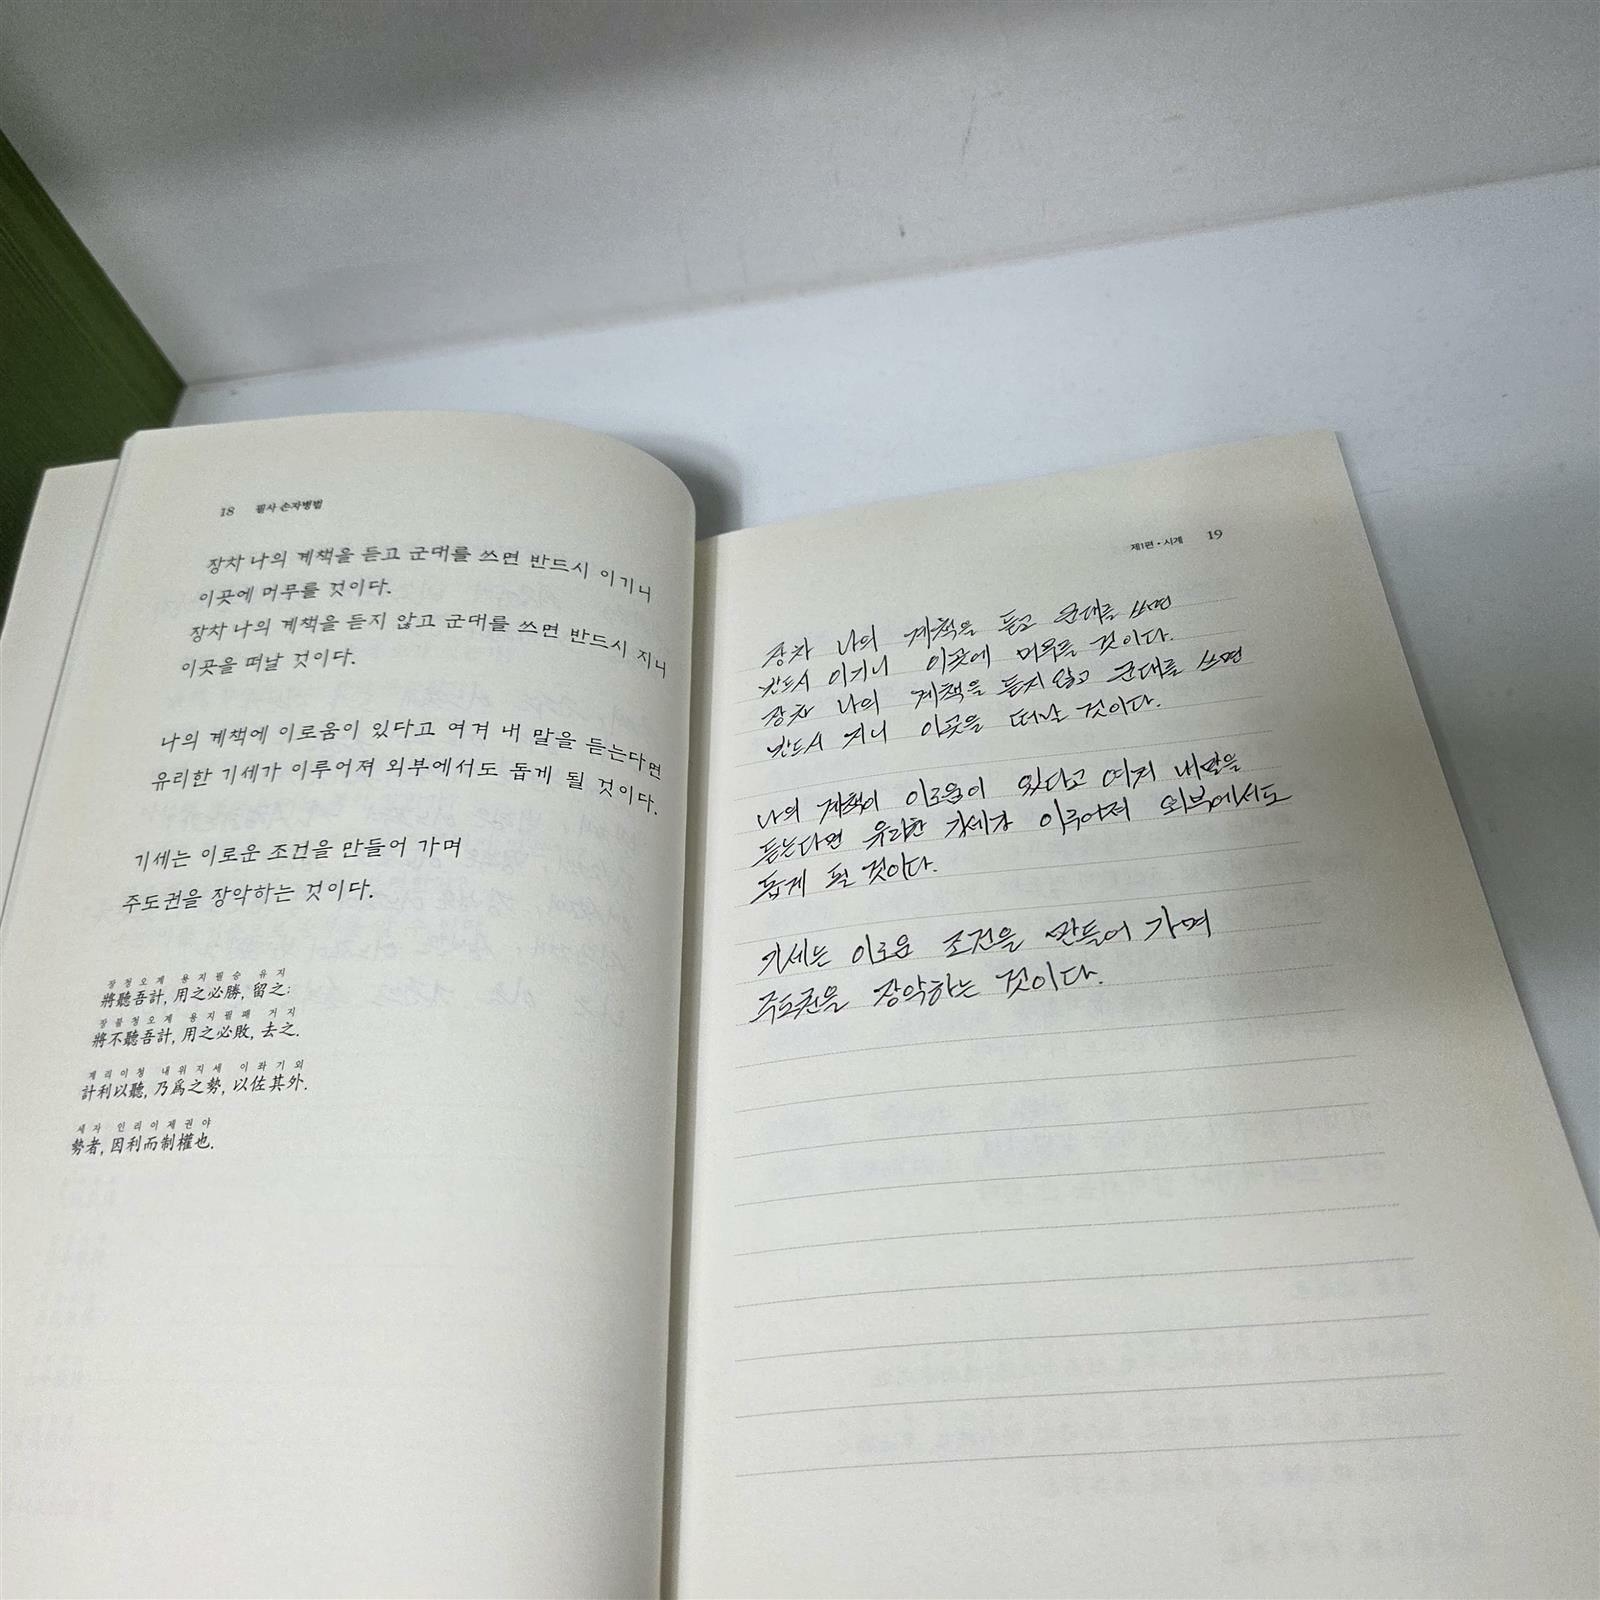 18 필사 손자병법
장차 나의 계책을 듣고 군대를 쓰면 반드시 이기니
이곳에 머무를 것이다.
장차 나의 계책을 듣지 않고 군대를 쓰면 반드시 지니
이곳을 떠날 것이다.
나의 계책에 이로움이 있다고 여겨 내 말을 듣는다면
유리한 기세가 이루어져 외부에서도 돕게 될 것이다.
기세는 이로운 조건을 만들어 가며
주도권을 장악하는 것이다.
장청오계 용지필승 유지
將聽吾計, 用之必勝, 留之;
장불청오계 용지필패 거지
將不聽吾計, 用之必敗, 去之.
계리이청 내위지세 이좌기외
計利以聽, 乃爲之勢, 以佐其外.
세자 인리이제권야
勢者, 因利而制權也.
제1편 • 시계 19
장차 나의 계책을 듣고 군대를 쓰면
반드시 이기니 이곳에 머무를 것이다.
장차 나의 계책을 듣지 않고 군대를 쓰면
반드시 지니 이곳을 떠날 것이다.
나의 계책이 이로움이 있다고 여겨 내 말을
듣는다면 유리한 기세가 이루어져 외부에서도
돕게 될 것이다.
기세는 이로운 조건을 만들어 가며
주도권을 장악하는 것이다.